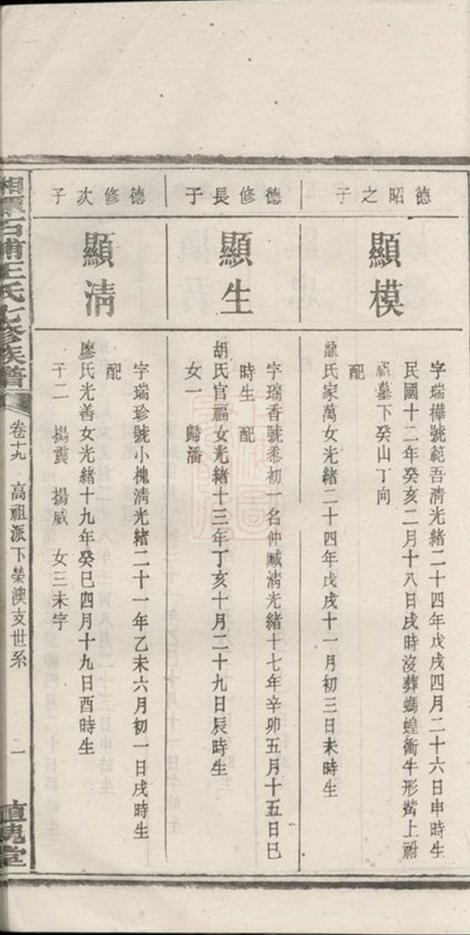 德昭之子
顯模
字瑞樺號範吾清光緒二十四年戊戌四月二十六日申時生
民國十二年癸亥二月十八日戌時沒葬螞蝗衝牛形觜上祔
祖墓下癸山丁向
配
氏家萬女光緒二十四年戊戌十一月初三日未時生
德修長子
顯生
字瑞香號黍初一名仲臧清光緒十七年辛卯五月十五日巳
時生 配
胡氏官福女光緒十三年丁亥十月二十九日辰時生
女一 歸潘
德修次子
顯清
字瑞珍號小槐清光緒二十一年乙未六月初一日戌時生
配
廖氏光善女光緒十九年癸巳四月十九日酉時生
子二 揚震 揚威 女三未字
湘潭石浦王氏七修族譜 卷十九 高祖派下榮澳支世系 一 植槐堂